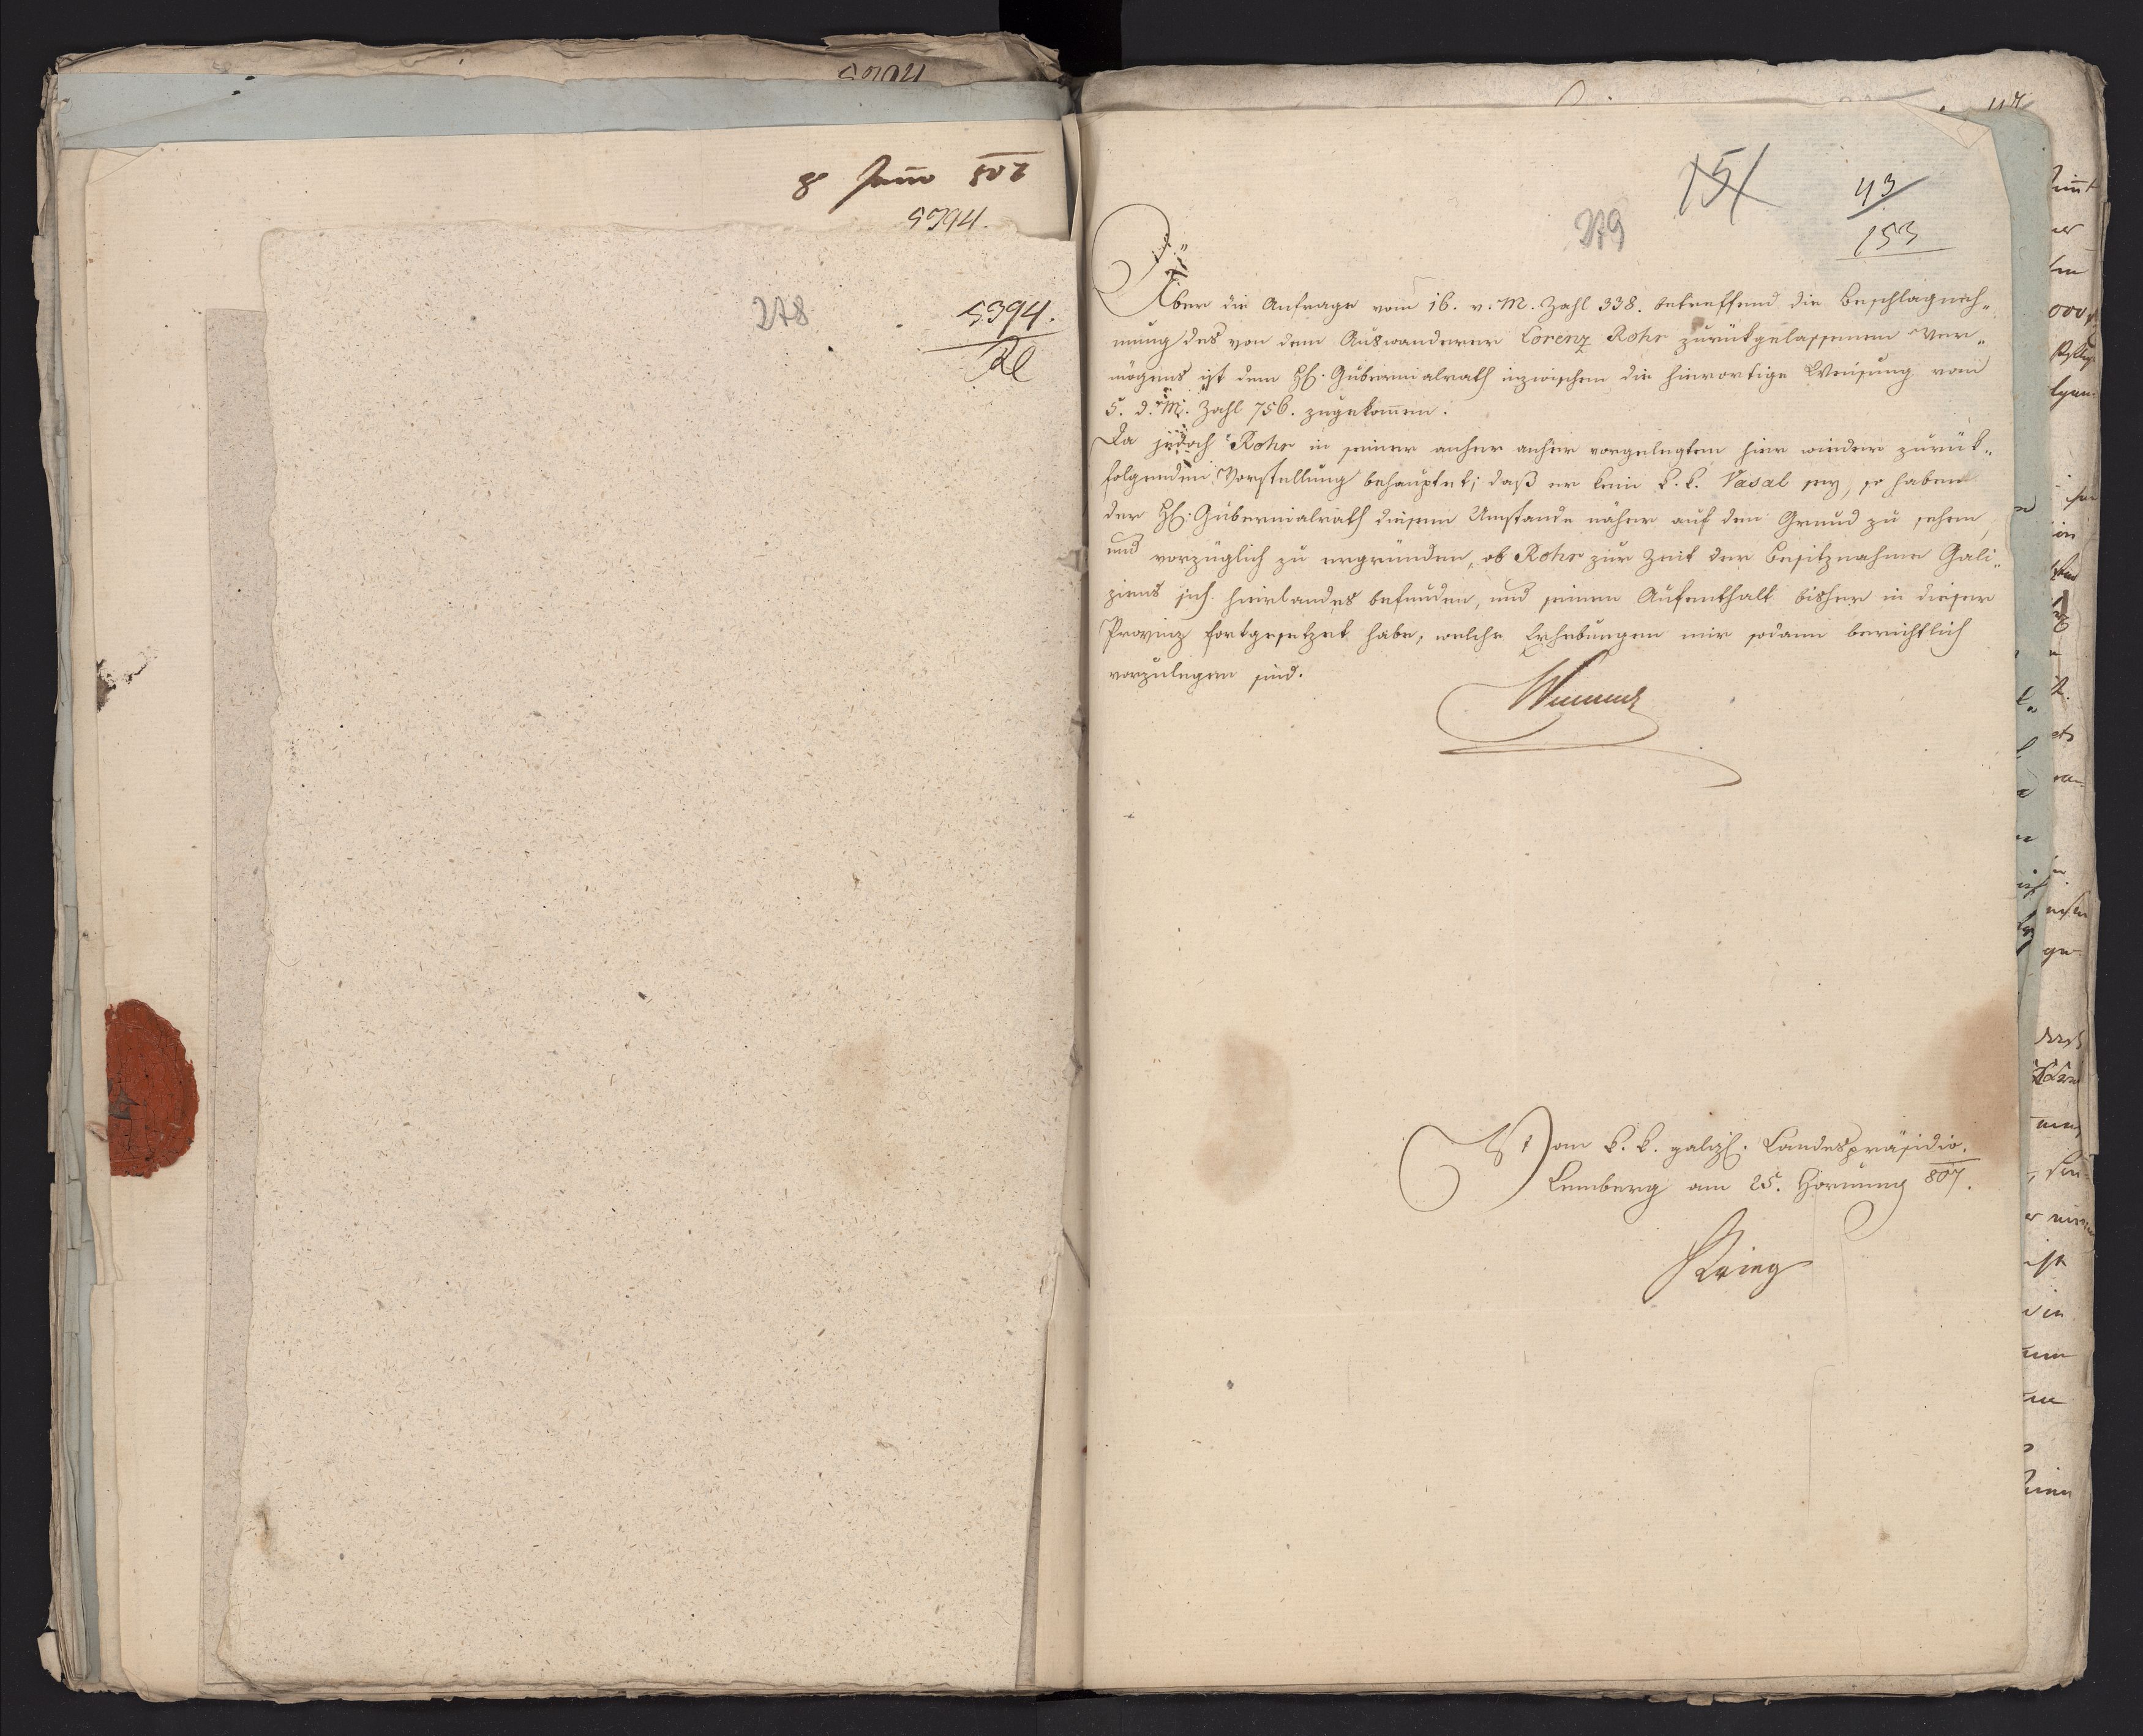 8 Juno 807
5394.
278
5394.
151
43
153
279
Über die Anfrage vom 16. v. M. Zahl 338. betreffend die Beschlagneh„
mung des von dem Auswanderer Lorenz Rohr zurükgelassenem Ver„
mögens ist dem H. Gubernialrath inzwischen die hierortige Weisung vom
5. d. M. Zahl 756. zugekom̄en.
Da jedoch Rohr in seiner anher anher vorgelegten hier wieder zurük„
folgenden Vorstellung behauptet; daß er kein k. k. Vasal sey, so haben
der H. Gubernialrath diesem Umstande näher auf den Grund zu sehen,
und vorzüglich zu ergründen, ob Rohr zur Zeit der Besitznahme Gali„
ziens sich hierlandes befunden, und seinen Aufenthalt bisher in dieser
Provinz fortgesetzet habe, welche Erhebungen mir sodann berichtlich
vorzulegen sind.
Vom k. k. galiz. Landespräsidio.
Lemberg am 25. Hornung 807.
Krieg